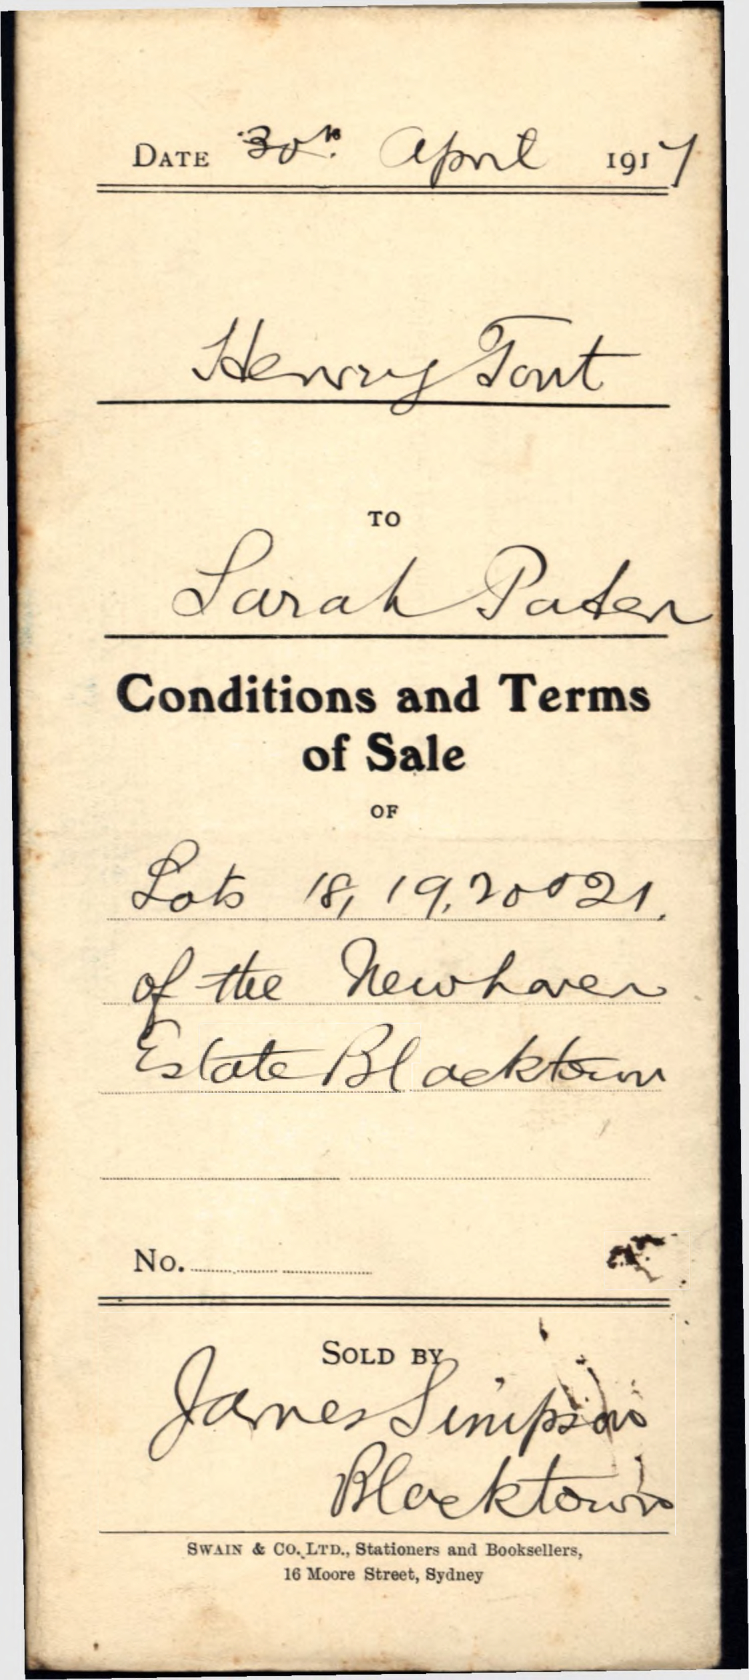 DATE 30th April 1917
Henry Font
TO
Sarah Paten
Conditions and Terms
of Sale
OF
Lots 18, 19, 20 & 21.
of the Newhaven
Estate Blacktown
No.
SOLD BY
James Simpson
Blacktown
SWAIN & CO. LTD., Stationers and Booksellers,
16 Moore Street, Sydney